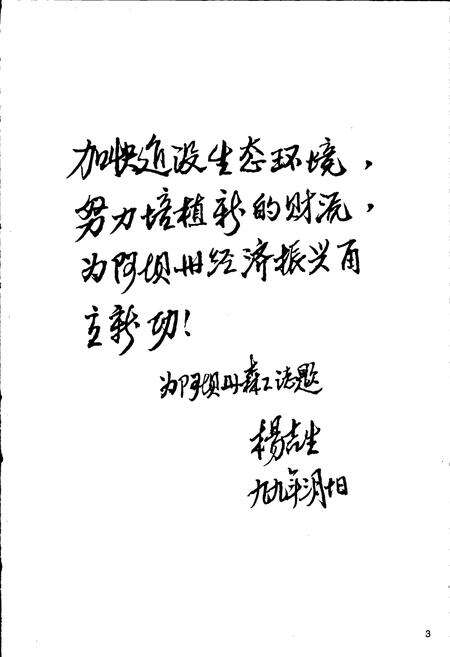 加快建设生态环境，
努力培植新的财源，
为阿坝州经济振兴再
立新功！
为阿坝州森工志题
杨吉生
九九年三月十日
3